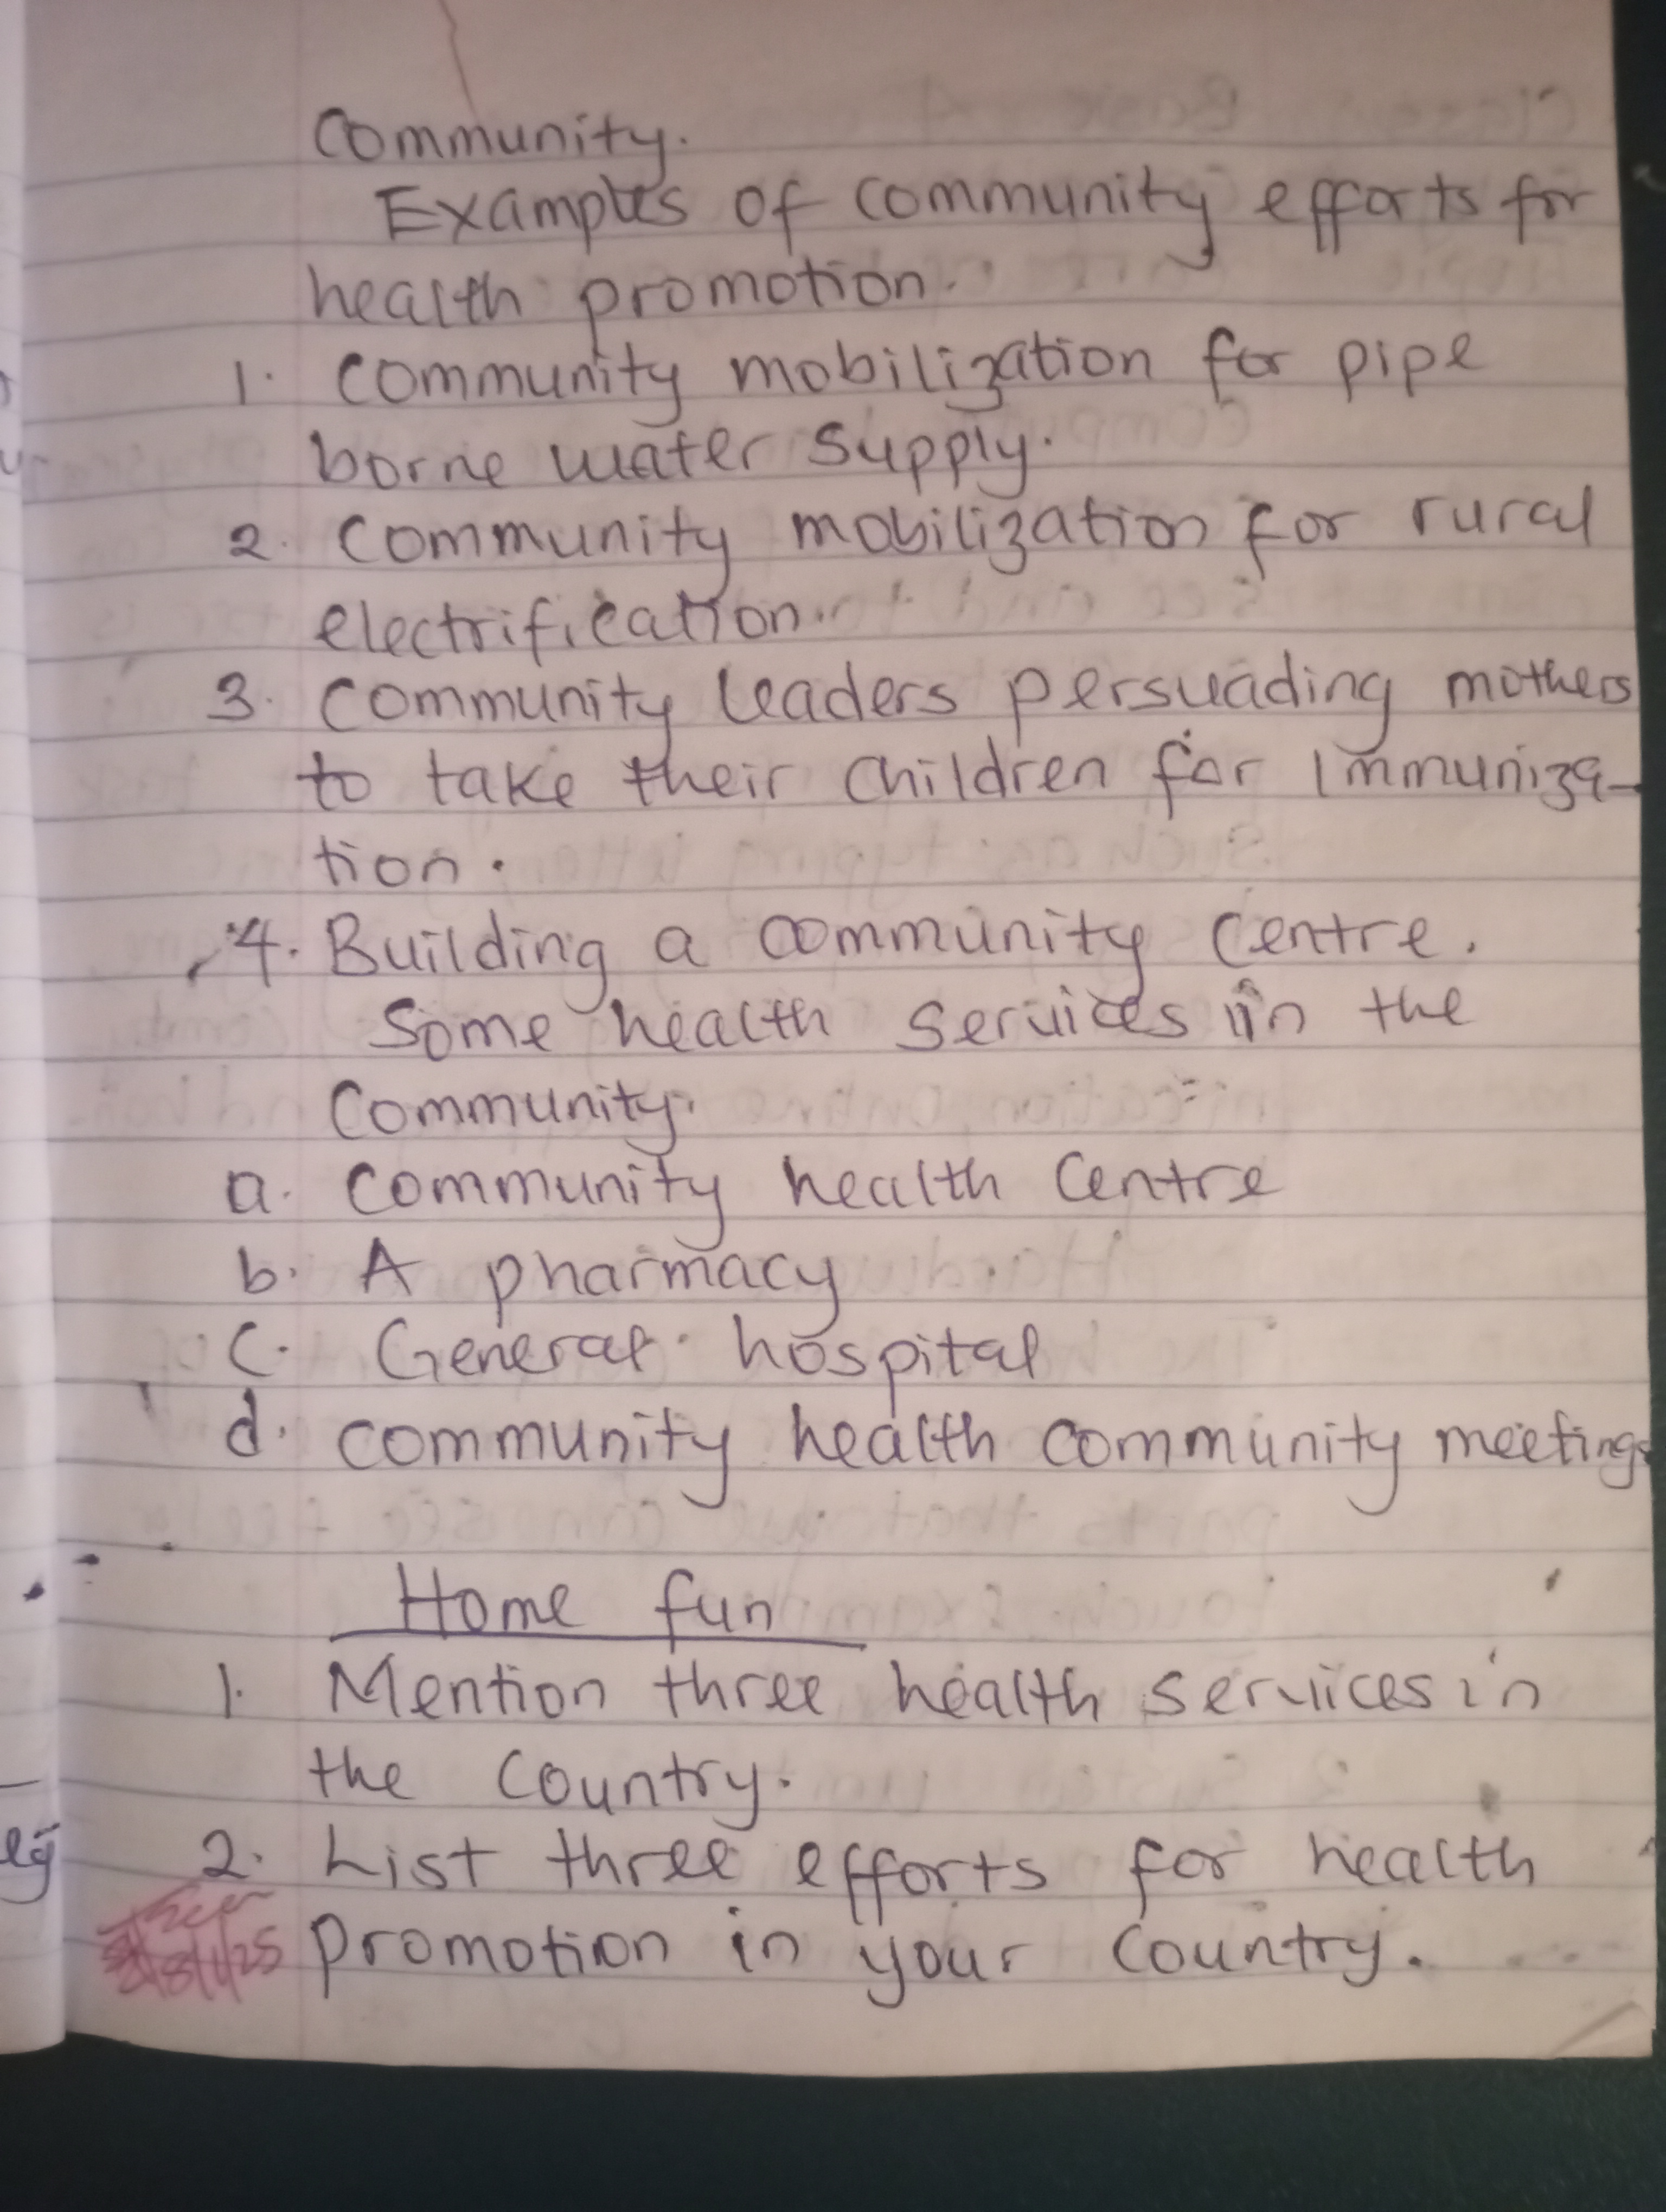 Community.
Examples of community efforts for
health promotion.
1. Community mobilization for pipe
borne water supply.
2. Community mobilization for rural
electrification.
3. Community leaders persuading mothers
to take their children for Immuniza-
tion.
4. Building a community centre.
Some health services in the
Community.
a. Community health Centre
b. A pharmacy
c. General hospital
d. Community health community meetings
Home fun
1. Mention three health services in
the Country.
2. List three efforts for health
promotion in your Country.